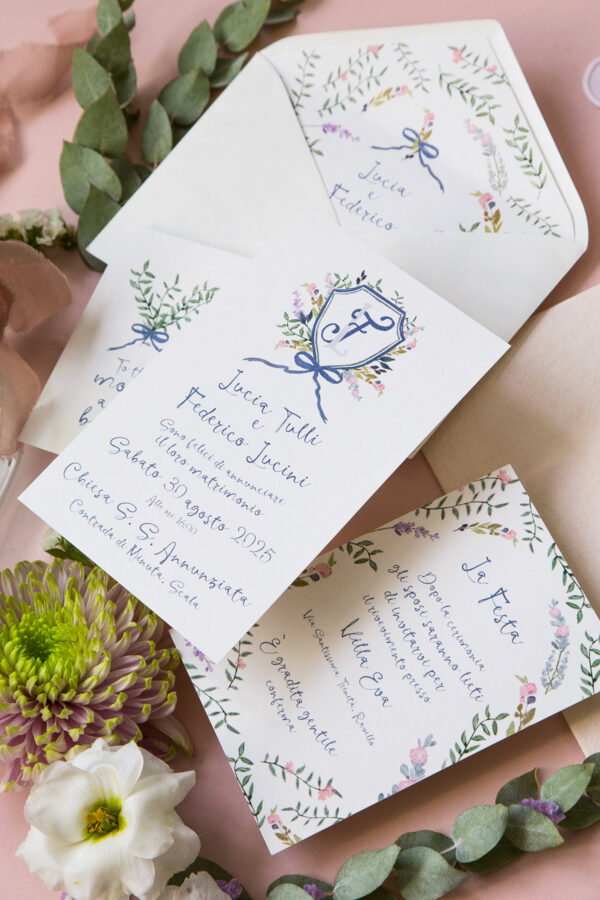 Lucia
e
Federico
Lucia Tulli
e
Federico Lucini
Sono felici di annunciare
il loro matrimonio
Sabato 30 agosto 2025
Alle ore 16:00
Chiesa S. S. Annunziata
Contrada di Minuta, Scala
La Festa
Dopo la cerimonia
gli sposi saranno lieti
di invitarvi per
il ricevimento presso
Villa Eva
Via Santissima Trinita, Ravello
È gradita gentile
conferma